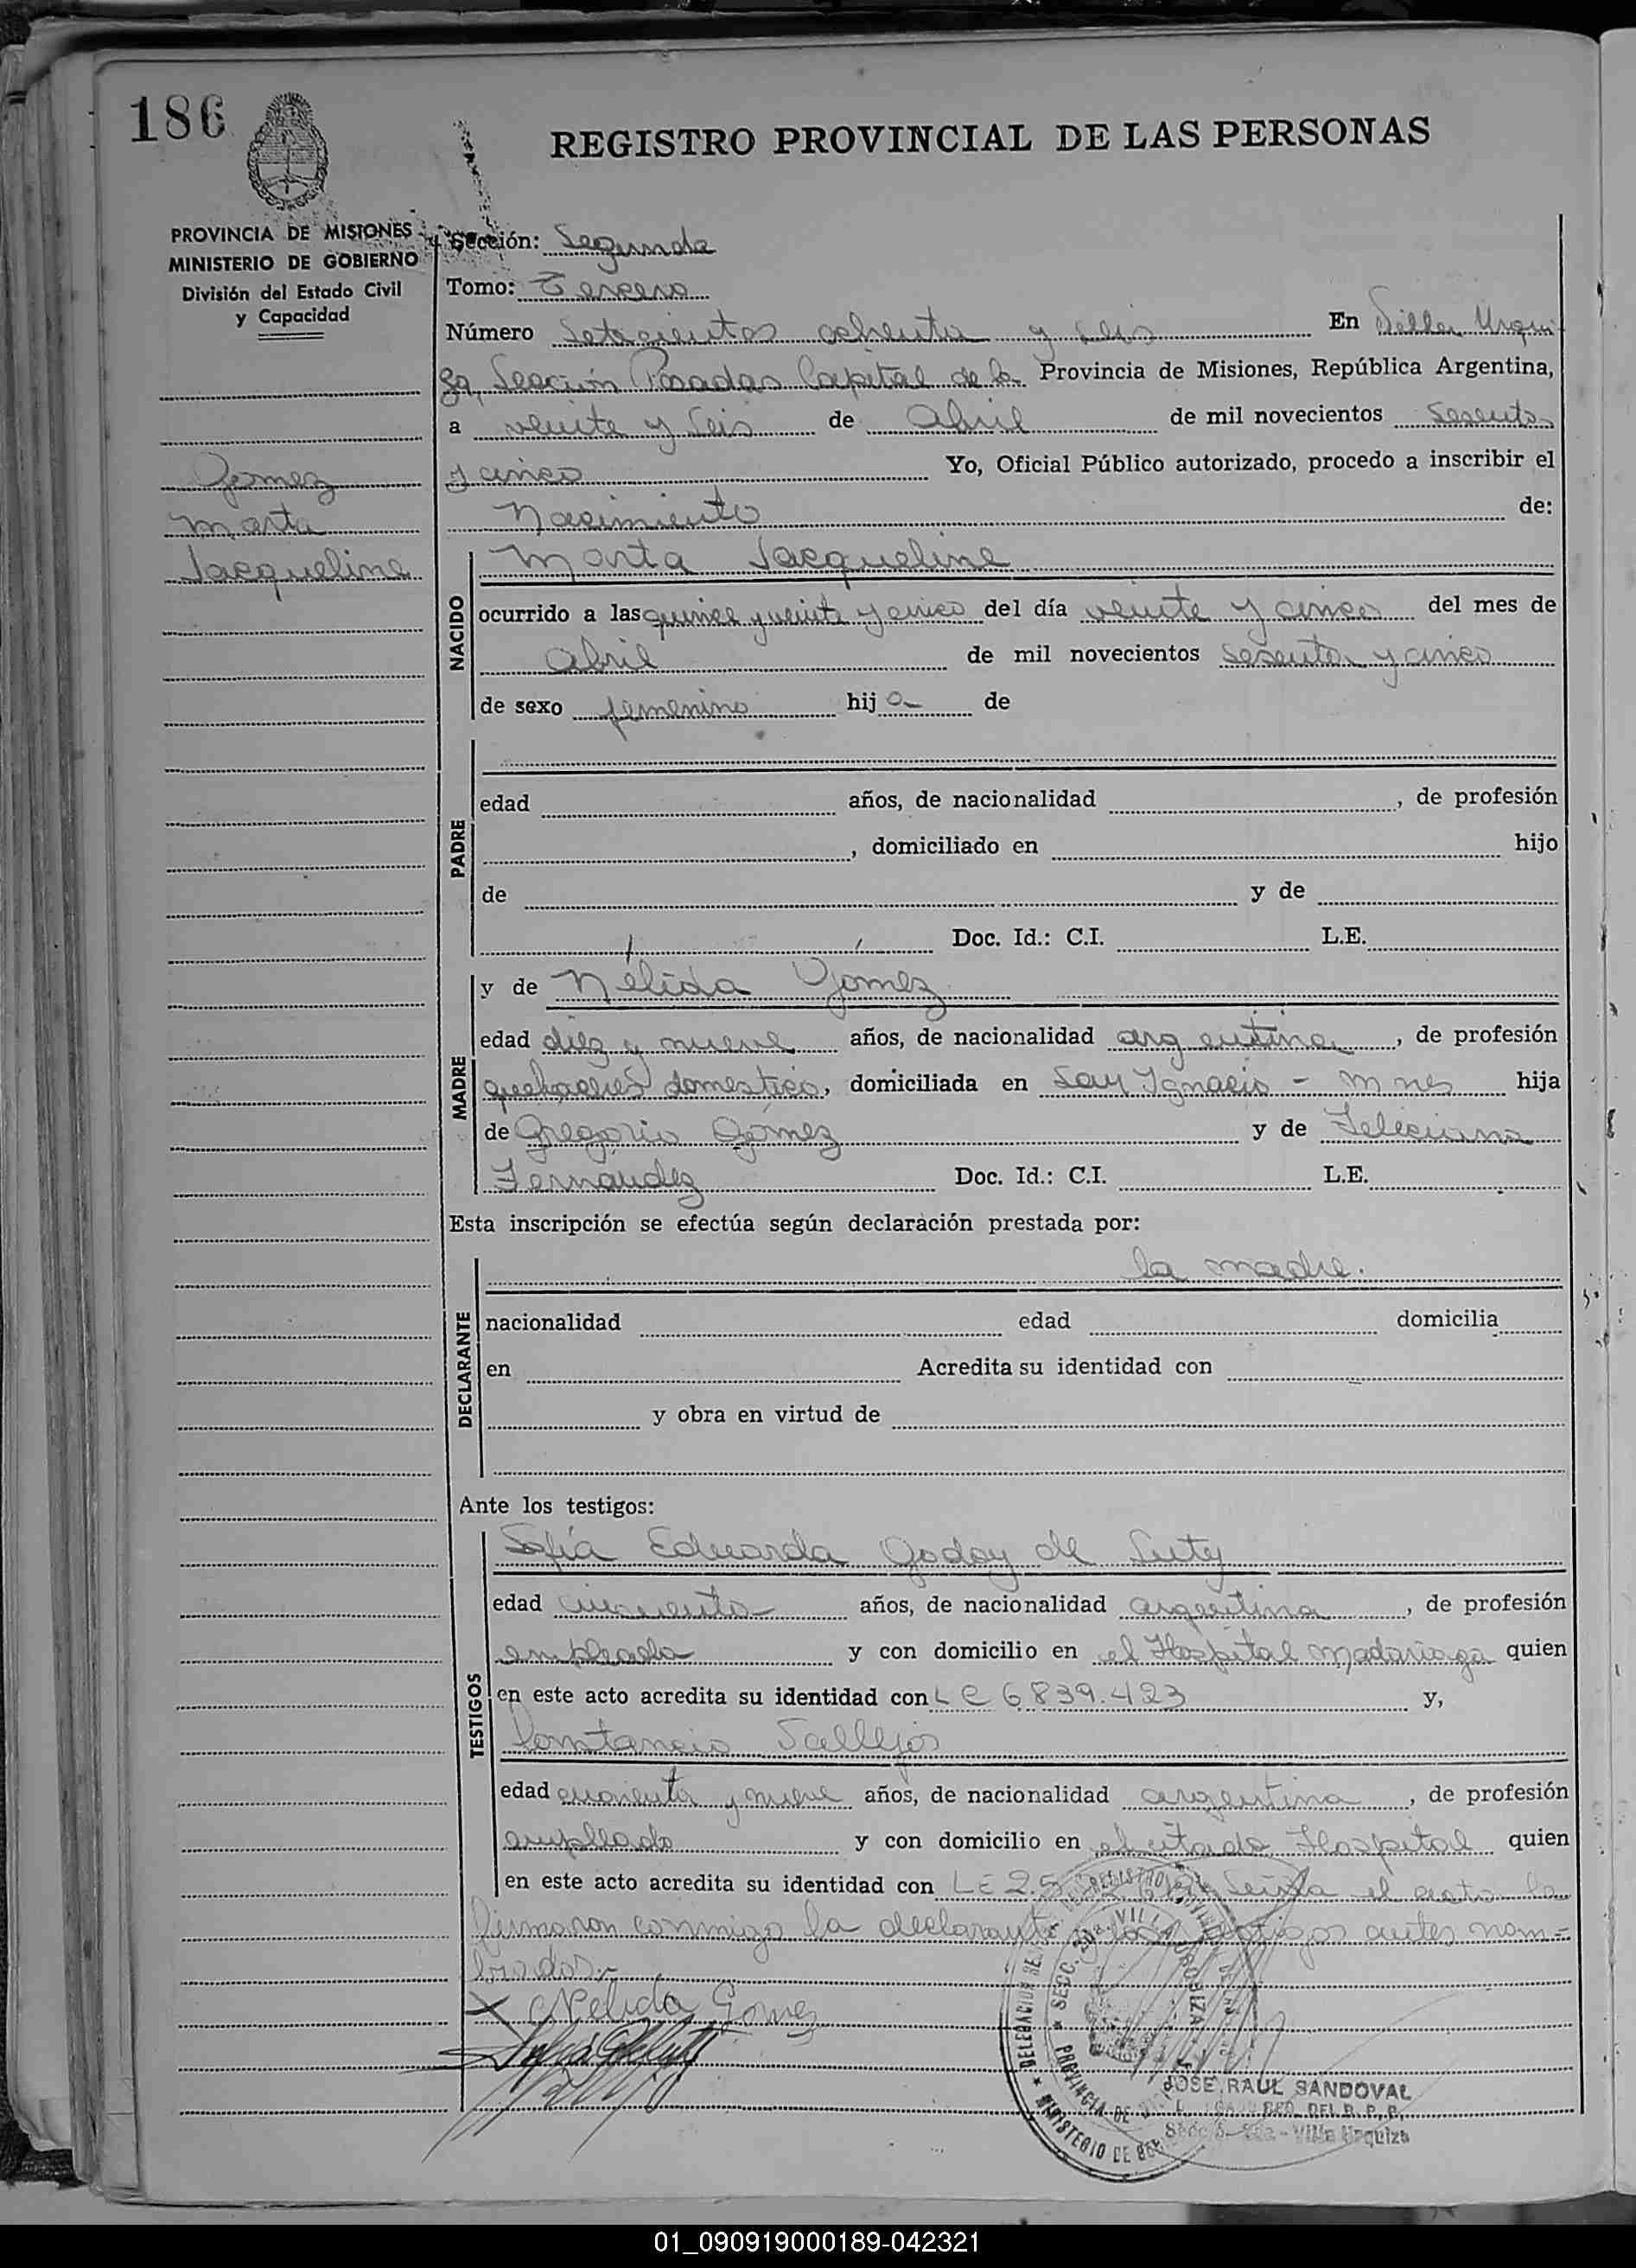 186
REGISTRO PROVINCIAL DE LAS PERSONAS
PROVINCIA DE MISIONES
MINISTERIO DE GOBIERNO
División del Estado Civil
y Capacidad
Gomez
Marta
Jacqueline
Sección: Segunda
Tomo: Tercero
Número Setecientos ochenta y seis En Villa Urqui
za, Sección Posadas Capital de la Provincia de Misiones, República Argentina,
a veinte y seis de Abril de mil novecientos sesenta
y cinco Yo, Oficial Público autorizado, procedo a inscribir el
Nacimiento de:
NACIDO
Marta Jacqueline
ocurrido a las quince y veinte y cinco del día veinte y cinco del mes de
Abril de mil novecientos sesenta y cinco
de sexo femenino hija de
PADRE
edad años, de nacionalidad , de profesión
, domiciliado en hijo
de y de
Doc. Id.: C.I. L.E.
MADRE
y de Nélida Gomez
edad diez y nueve años, de nacionalidad argentina, de profesión
quehaceres domestico, domiciliada en San Ignacio - Mnes hija
de Gregorio Gómez y de Feliciana
Fernandez Doc. Id.: C.I. L.E.
Esta inscripción se efectúa según declaración prestada por:
DECLARANTE
la madre.
nacionalidad edad domicilia
en Acredita su identidad con
y obra en virtud de
Ante los testigos:
TESTIGOS
Sofía Eduarda Godoy de Luty
edad cincuenta años, de nacionalidad argentina, de profesión
empleada y con domicilio en el Hospital Madariaga quien
en este acto acredita su identidad con L C 6.839.423 y,
Constancio Vallejos
edad cuarenta y nueve años, de nacionalidad argentina, de profesión
empleado y con domicilio en el citado Hospital quien
en este acto acredita su identidad con LE 2.5 el acta la
firmaron conmigo la declarante y los testigos antes nom=
brados.-
X Nelida Gomez
SECC. 2da. VILLA URQUIZA
PROVINCIA DE
MINISTERIO DE
JOSE RAUL SANDOVAL
Villa Urquiza
01_090919000189-042321